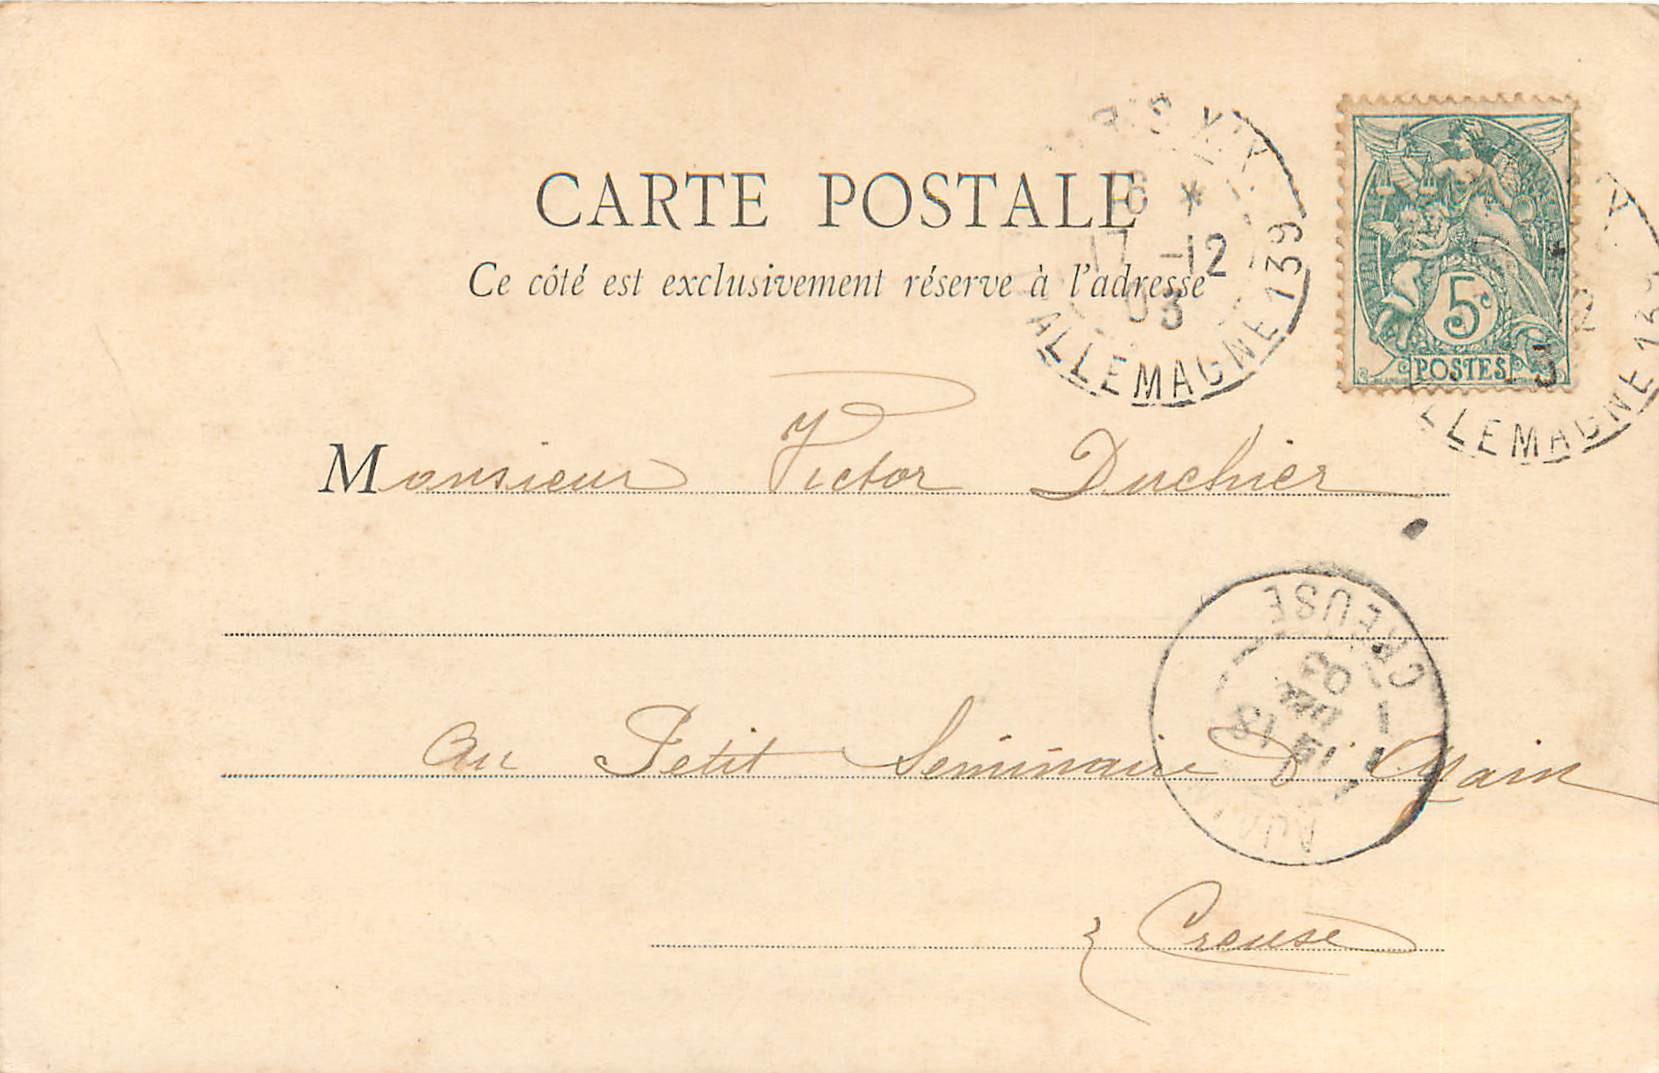 CARTE POSTALE
Ce côté est exclusivement réservé à l'adresse
6 *
17 -12
03
ALLEMAGNE 139
5c
POSTES
LLEMAGNE 13
Monsieur Victor Duchier
CREUSE
03
Au Petit Séminaire d'Ajain
Creuse